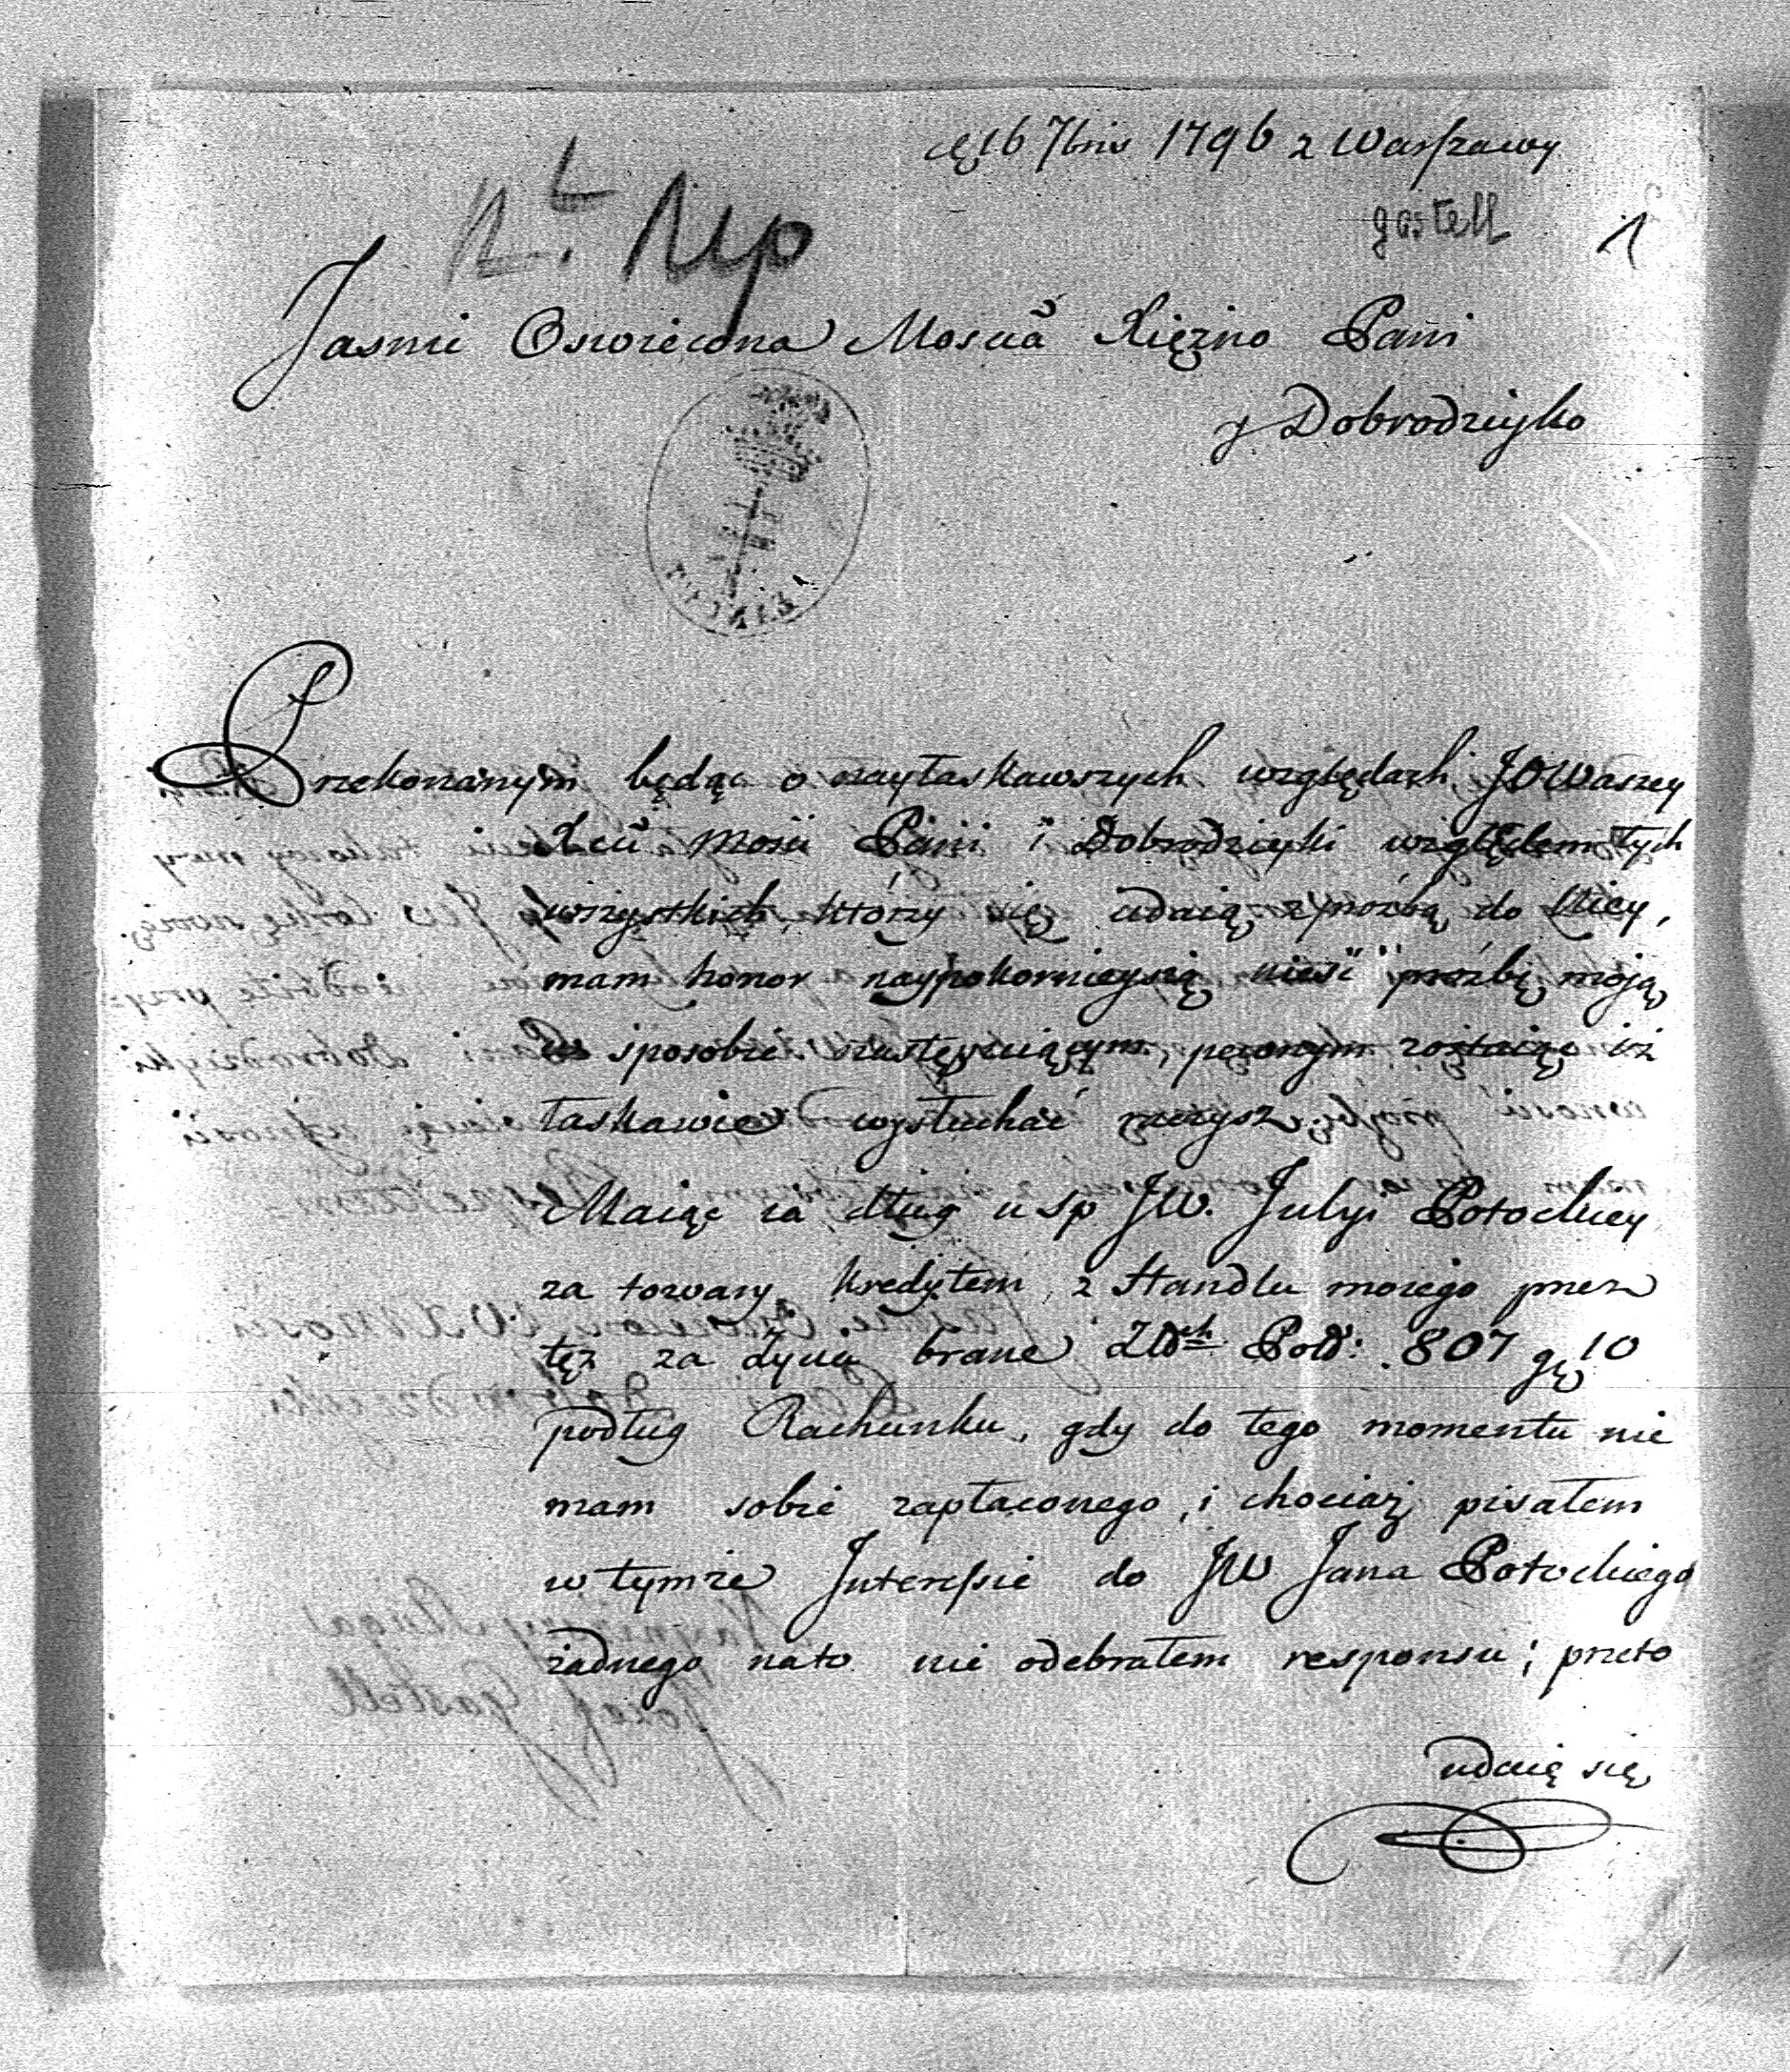 16 7bris 1796 z Warszawy
gastell 1
Jasnie Oswiecona Moscia Xiężno Pani
y Dobrodzieyko
Przekonanym będąc o nayłaskawszych względach JOWaszey
Xcei Mosci Pani i Dobrodzieyki względem tych
wszystkich, którzy się udaią z prozbą do Niey,
mam honor naypokornieyszą nieść prozbę moją
w sposobie następuiącym, pewnym zostaiąc iż
łaskawie wysłuchać raczysz.
Maiąc za dług u sp JW. Julyi Potockiey
za towary kredytem, z Handlu mojego przez
tęż za życia brane Złch Pols: 807 gę 10
podług Rachunku, gdy do tego momentu nie
mam sobie zapłaconego, i chociaż pisałem
w tymże Interessie do JW Jana Potockiego
żadnego nato nie odebrałem responsu; przeto
udaię się